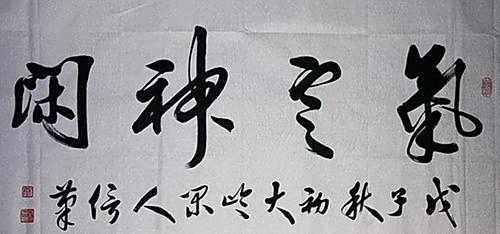 氣定神閑
戊子秋初大閑人信筆